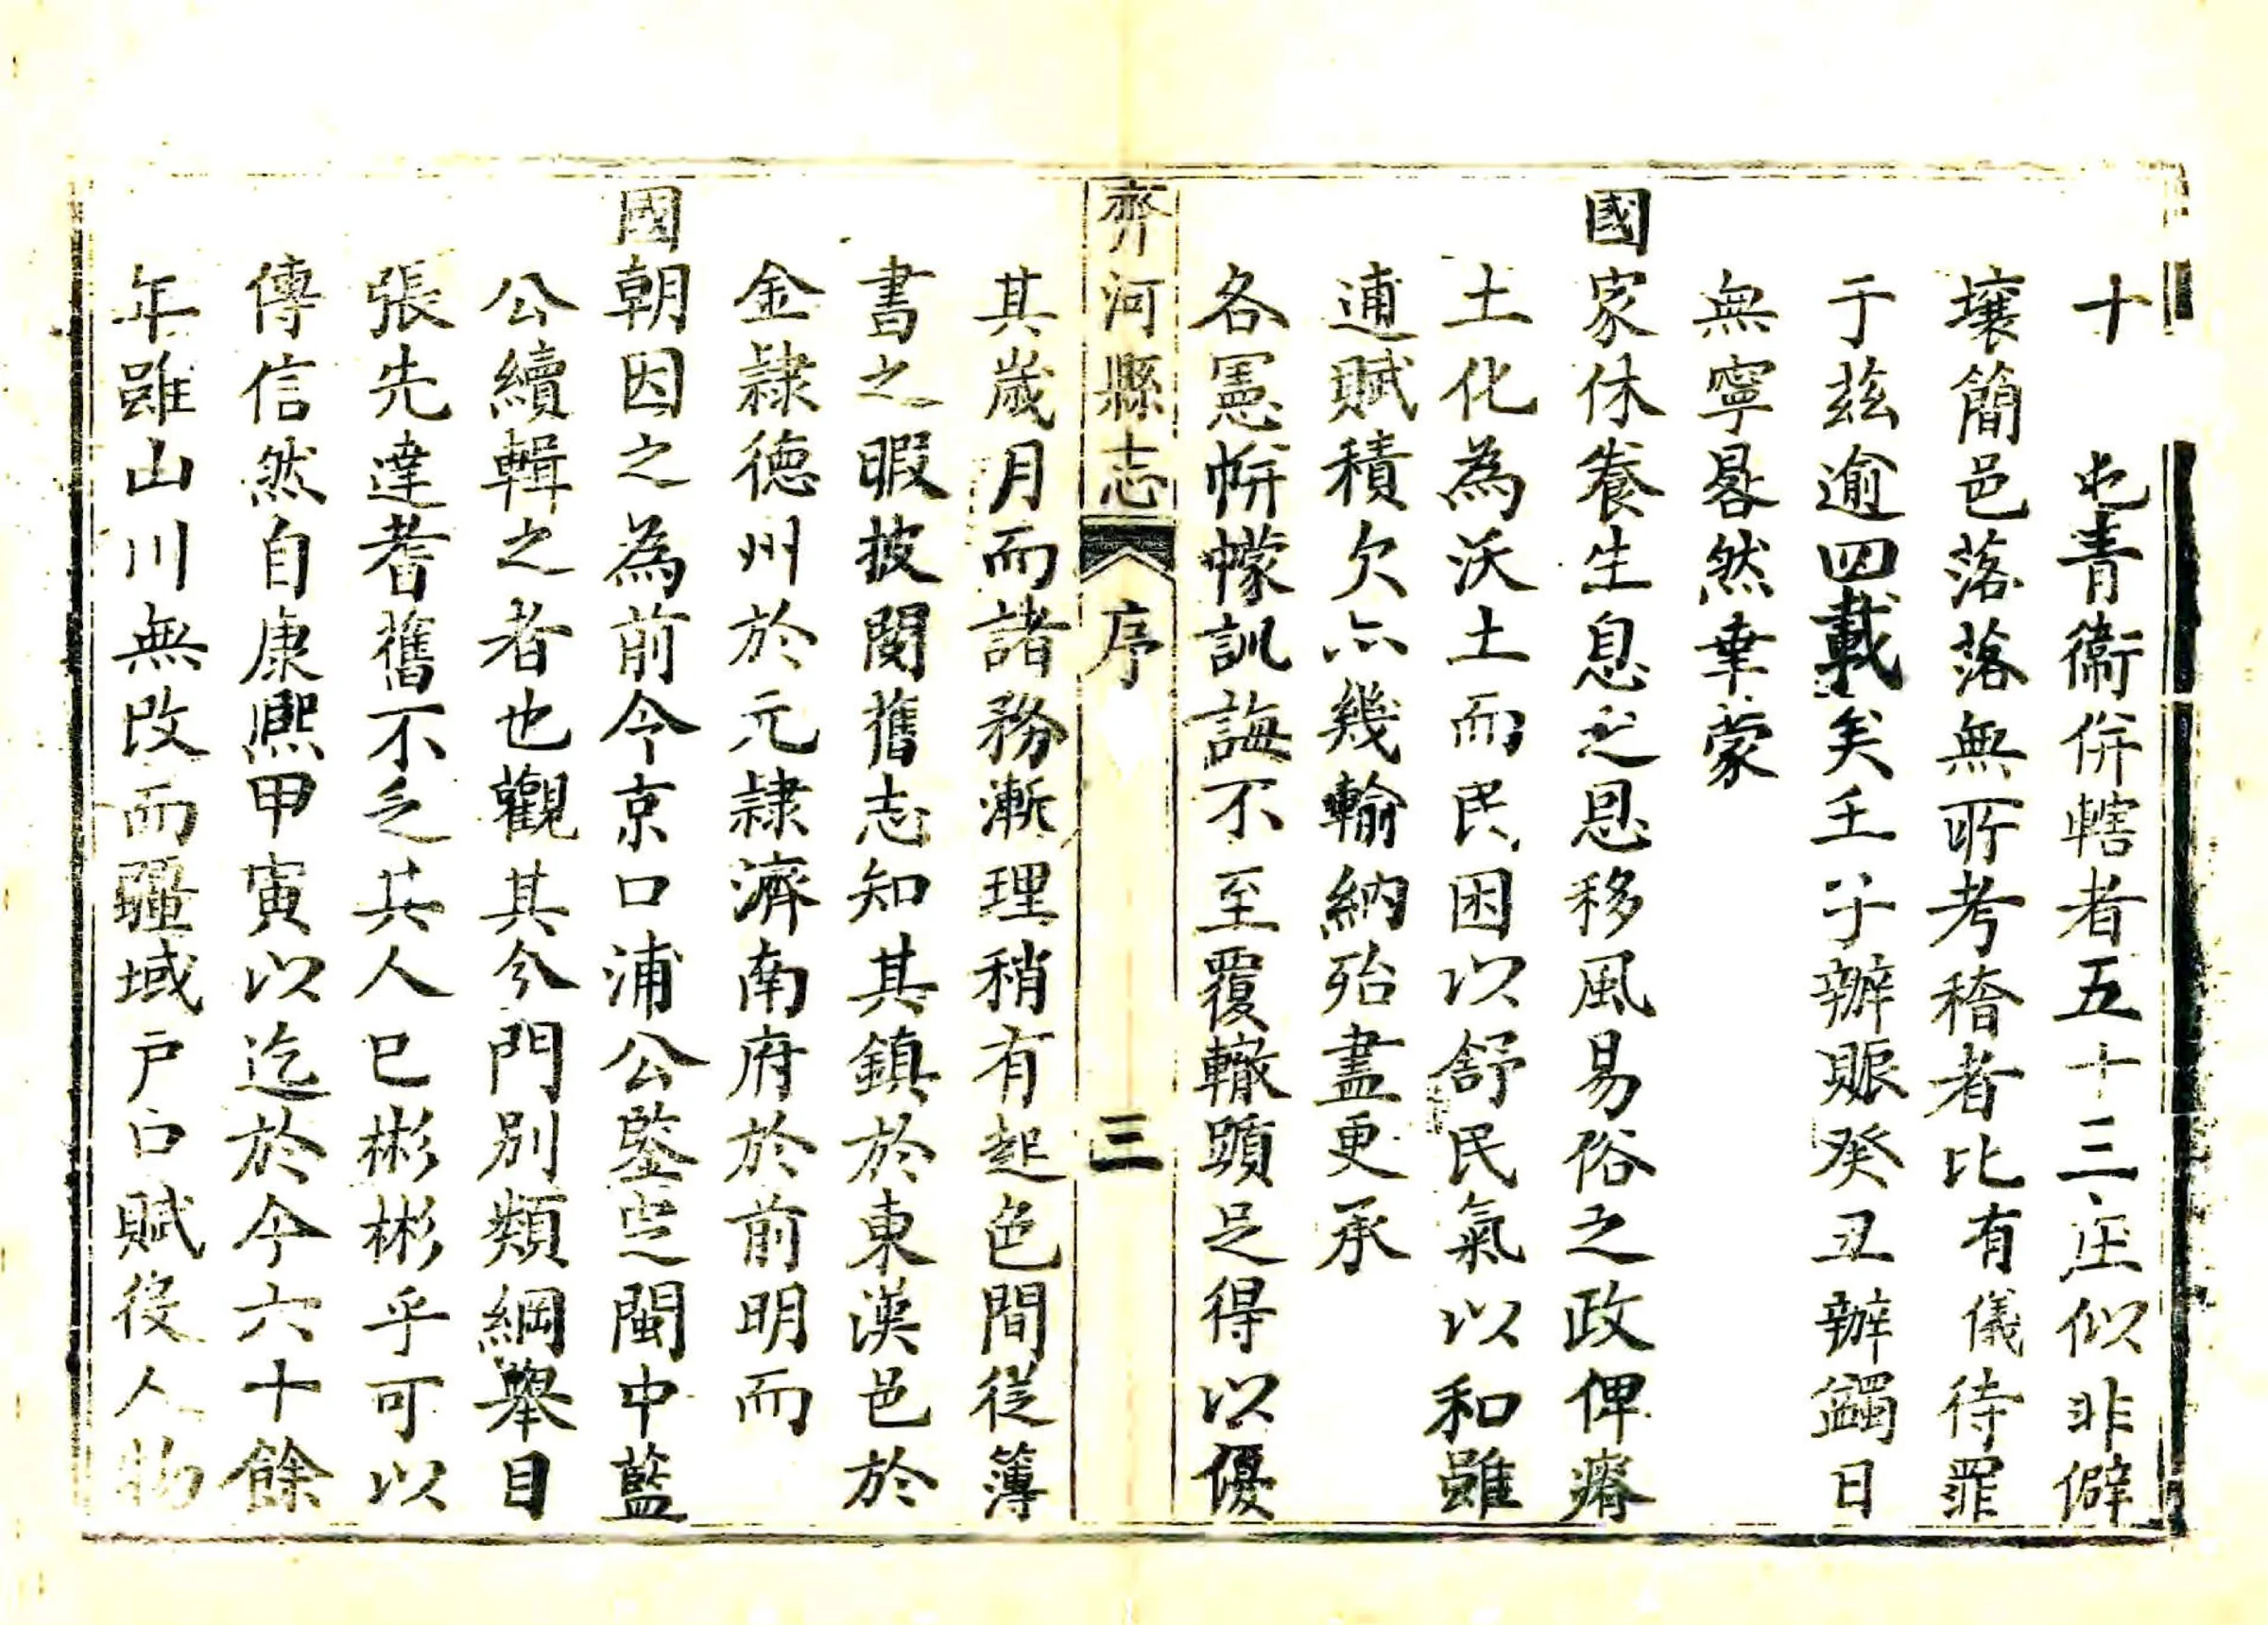 十　屯青衞併轄者五十三庄似非僻
壤簡邑落落無所考稽者比有儀待罪
于茲逾四載矣壬子辦賑癸丑辦蠲日
無寧晷然幸蒙
國家休養生息之恩移風易俗之政俾瘠
土化為沃土而民困以舒民氣以和雖
逋賦積欠亦幾輸納殆盡更承
各憲帡幪訓誨不至覆轍顕足得以優
齊河縣志　序　三
其歲月而諸務漸理稍有起色間從簿
書之暇披閱舊志知其鎮於東漢邑於
金隸德州於元隸濟南府於前明而
國朝因之為前令京口浦公鍳定之閩中藍
公續輯之者也觀其分門別類綱舉目
張先達耆舊不乏其人已彬彬乎可以
傳信然自康熈甲寅以迄於今六十餘
年雖山川無改而疆域户口賦役人物